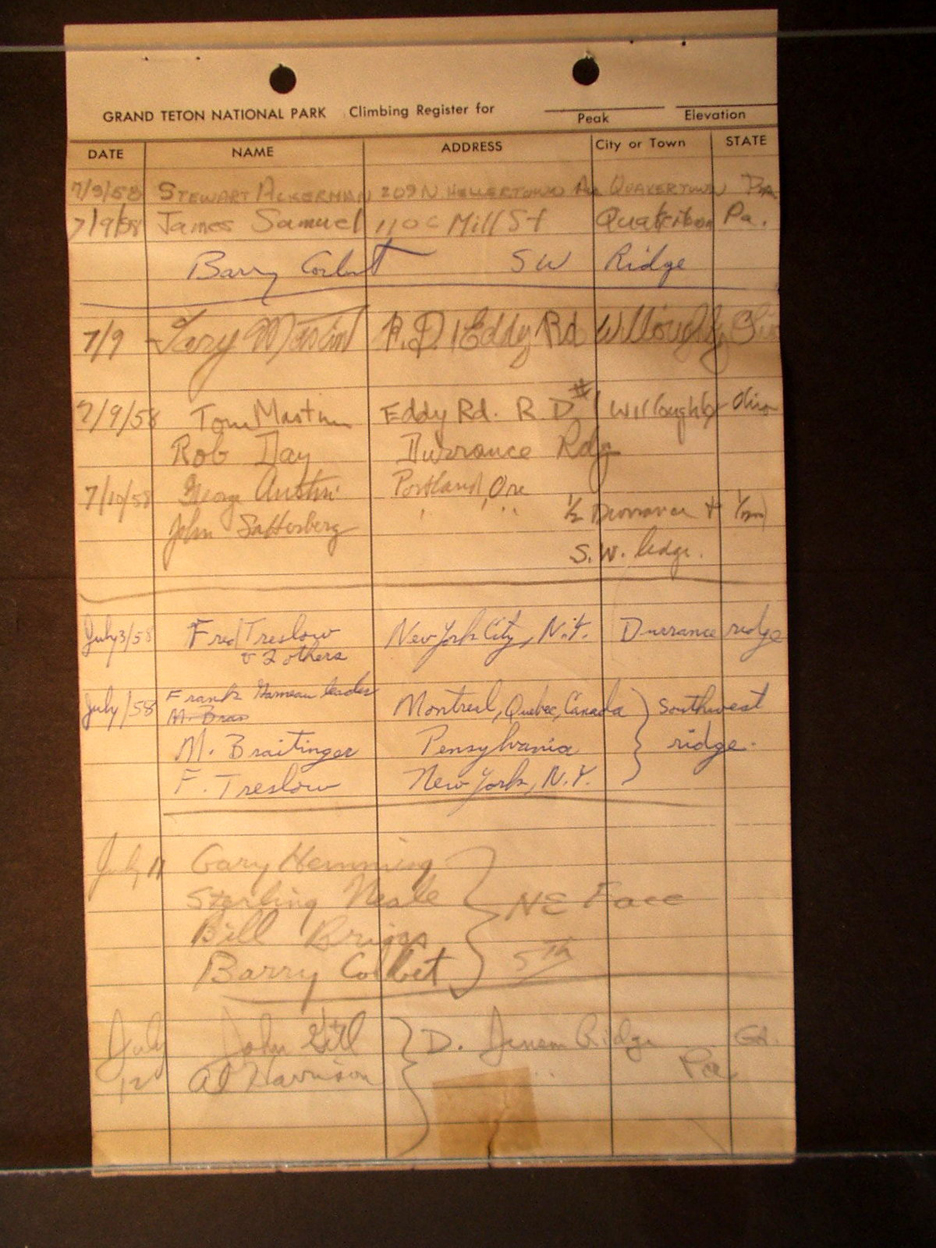 GRAND TETON NATIONAL PARK Climbing Register for
Peak Elevation
DATE NAME ADDRESS City or Town STATE
7/9/58 STEWART ACKERMAN 209 N. HELLERTOWN Av QUAKERTOWN Pa.
7/9/58 James Samuel 1100 Mill St Pa.
Barry Corbet SW Ridge
7/9 Martin R.D. 1 Eddy Rd Willoughby Ohio
7/9/58 Tom Martin Eddy Rd. R.D. #1 Willoughby Ohio
Rob Day Durrance Rdg
7/10/58 George Austin Portland, Ore
John 1/2 Durrance +
S.W. ledge.
July 3/58 Fred Treslow New York City, N.Y. Durrance ridge
& 2 others
July /58 Frank leader Montreal, Quebec, Canada } Southwest
M. Brai
M. Braitinger Pensylvania ridge.
F. Treslow New York, N.Y.
July 11 Gary Hemming
Sterling Neale } NE Face
Bill Briggs
Barry Corbet 5th
July John Gill } D. Ridge Ga.
12 Al Harrison " Pa.